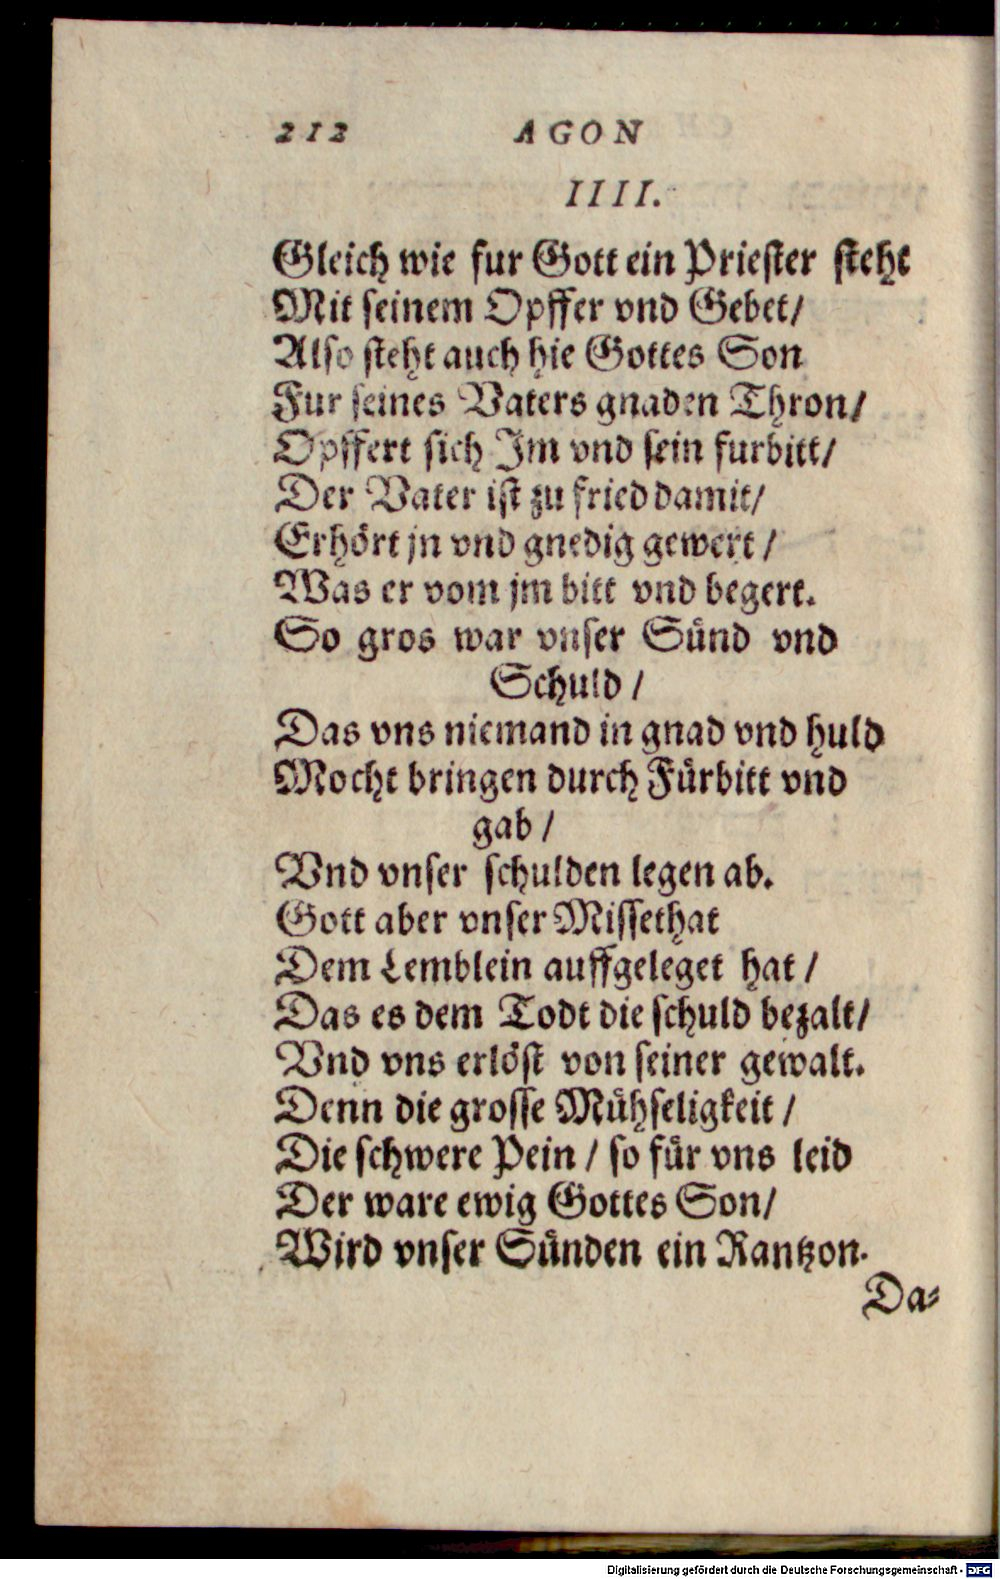 212 AGON
IIII.
Gleich wie fur Gott ein Priester steht
Mit seinem Opffer vnd Gebet/
Also steht auch hie Gottes Son
Fur seines Vaters gnaden Thron/
Opffert sich Im vnd sein furbitt/
Der Vater ist zu fried damit/
Erhört jn vnd gnedig gewert/
Was er vom jm bitt vnd begert.
So gros war vnser Sünd vnd
Schuld/
Das vns niemand in gnad vnd huld
Mocht bringen durch Fürbitt vnd
gab/
Vnd vnser schulden legen ab.
Gott aber vnser Missethat
Dem Lemblein auffgeleget hat/
Das es dem Todt die schuld bezalt/
Vnd vns erlöst von seiner gewalt.
Denn die grosse Mühseligkeit/
Die schwere Pein/ so für vns leid
Der ware ewig Gottes Son/
Wird vnser Sünden ein Rantzon.
Da-
Digitalisierung gefördert durch die Deutsche Forschungsgemeinschaft - DFG